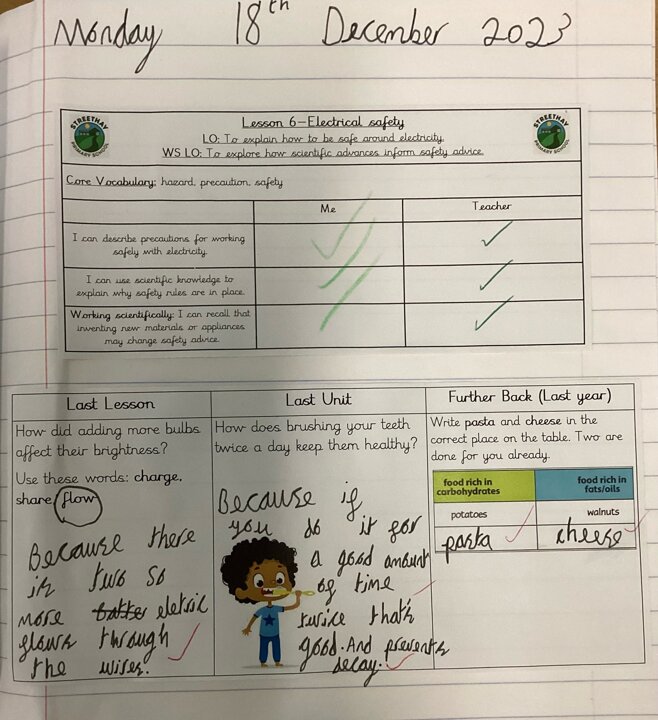 Monday 18th December 2023
STREETHAY PRIMARY SCHOOL
Lesson 6—Electrical safety
STREETHAY PRIMARY SCHOOL
LO: To explain how to be safe around electricity.
WS LO: To explore how scientific advances inform safety advice.
Core Vocabulary: hazard, precaution, safety
Me
Teacher
I can describe precautions for working
safely with electricity.
I can use scientific knowledge to
explain why safety rules are in place.
Working scientifically: I can recall that
inventing new materials or appliances
may change safety advice.
Last Lesson
How did adding more bulbs
affect their brightness?
Use these words: charge,
share flow
Because there
is two so
more eletric
flows through
the wires.
Last Unit
How does brushing your teeth
twice a day keep them healthy?
Because if
you do it for
a good amount
of time
twice that's
good. And prevents
decay.
Further Back (Last year)
Write pasta and cheese in the
correct place on the table. Two are
done for you already.
food rich in
carbohydrates
food rich in
fats/oils
potatoes
walnuts
pasta
cheese